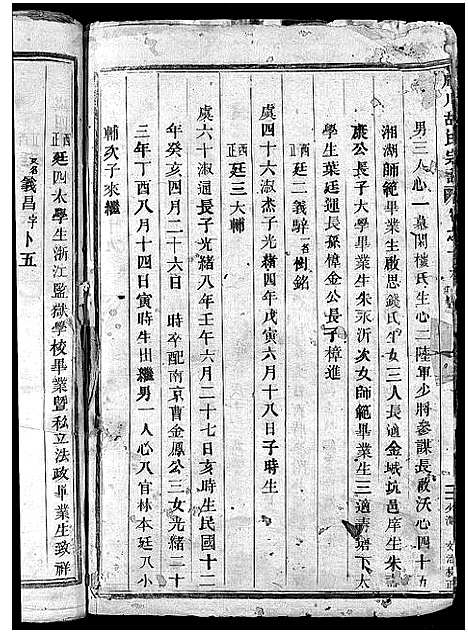 男三人心一嘉閑樓氏生心二陸軍少將參謀長嚴沃心四十五
湘湖師範畢業生啟思錢氏生女三人長適金城坑邑庠生朱
康公長子大學畢業生朱永沂次女師範畢業生三適壽塘下大
學生葉廷運長孫樟金公長子樟進
酉正 廷二義騂 名樹銘
虞四十六余子光緒四年戊寅六月十八日子時生
酉正 廷三大輔
虞六十淑通長子光緒八年壬午六月二十七日亥時生民國十二
年癸亥二月二十六日 時卒配南京曹金鳳公三女光緒二十
三年丁酉八月十四日寅時生出繼男一人心八官林本廷八小
輔次子來繼
酉正 廷四太學生浙江監獄學校畢業暨私立法政畢業生致祥
又名義昌字卜五